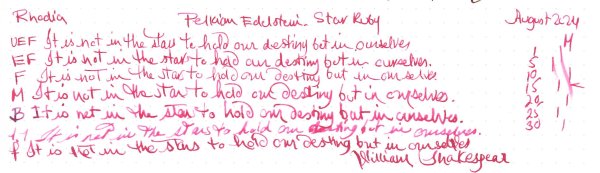 Rhodia Pelikan Edelstein Star Ruby August 2024
UEF It is not in the stars to hold our destiny but in ourselves
EF It is not in the stars to hold our destiny but in ourselves.
F It is not in the stars to hold our destiny but in ourselves
M It is not in the stars to hold our destiny but in ourselves.
B It is not in the stars to hold our destiny but in ourselves.
1.1 It is not in the stars to hold our destiny but in ourselves.
f It is not in the stars to hold our destiny but in ourselves
William Shakespear
M
1
5
10
15
20
25
30